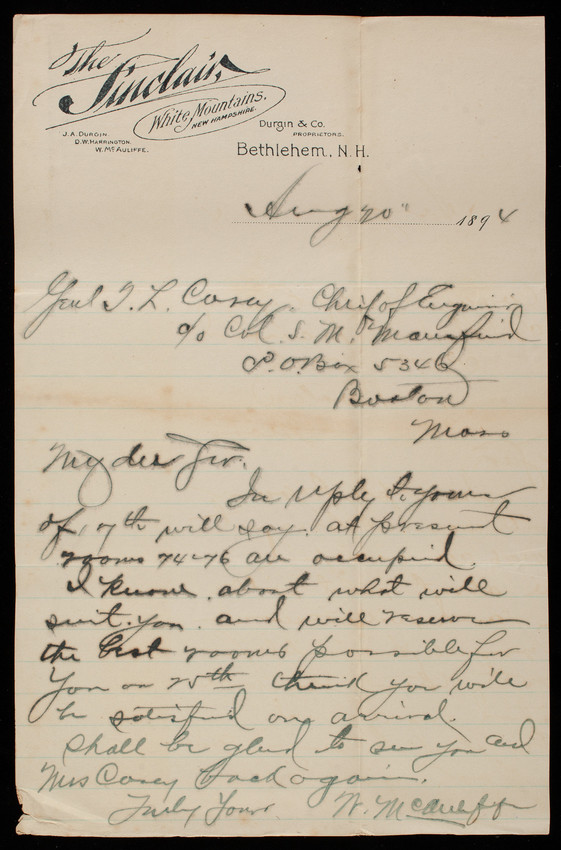 The Sinclair,
White Mountains.
NEW HAMPSHIRE.
J. A. DURGIN.
D. W. HARRINGTON.
W. McAULIFFE.
Durgin & Co.
PROPRIETORS.
Bethlehem, N. H.
Aug 20" 1894
Genl T. L. Casey. Chief of Engineers
c/o Col. S. M. Mansfield
P.O. Box 5346
Boston
Mass
My dear Sir.
In reply to yours
of 17th will say. at present
rooms 74-76 are occupied.
I know. about what will
suit. you. and will reserve
the best rooms possible for
you on 25th think you will
be satisfied on arrival.
Shall be glad to see you and
Mrs Casey back again.
Truly Yours W. McAuliffe